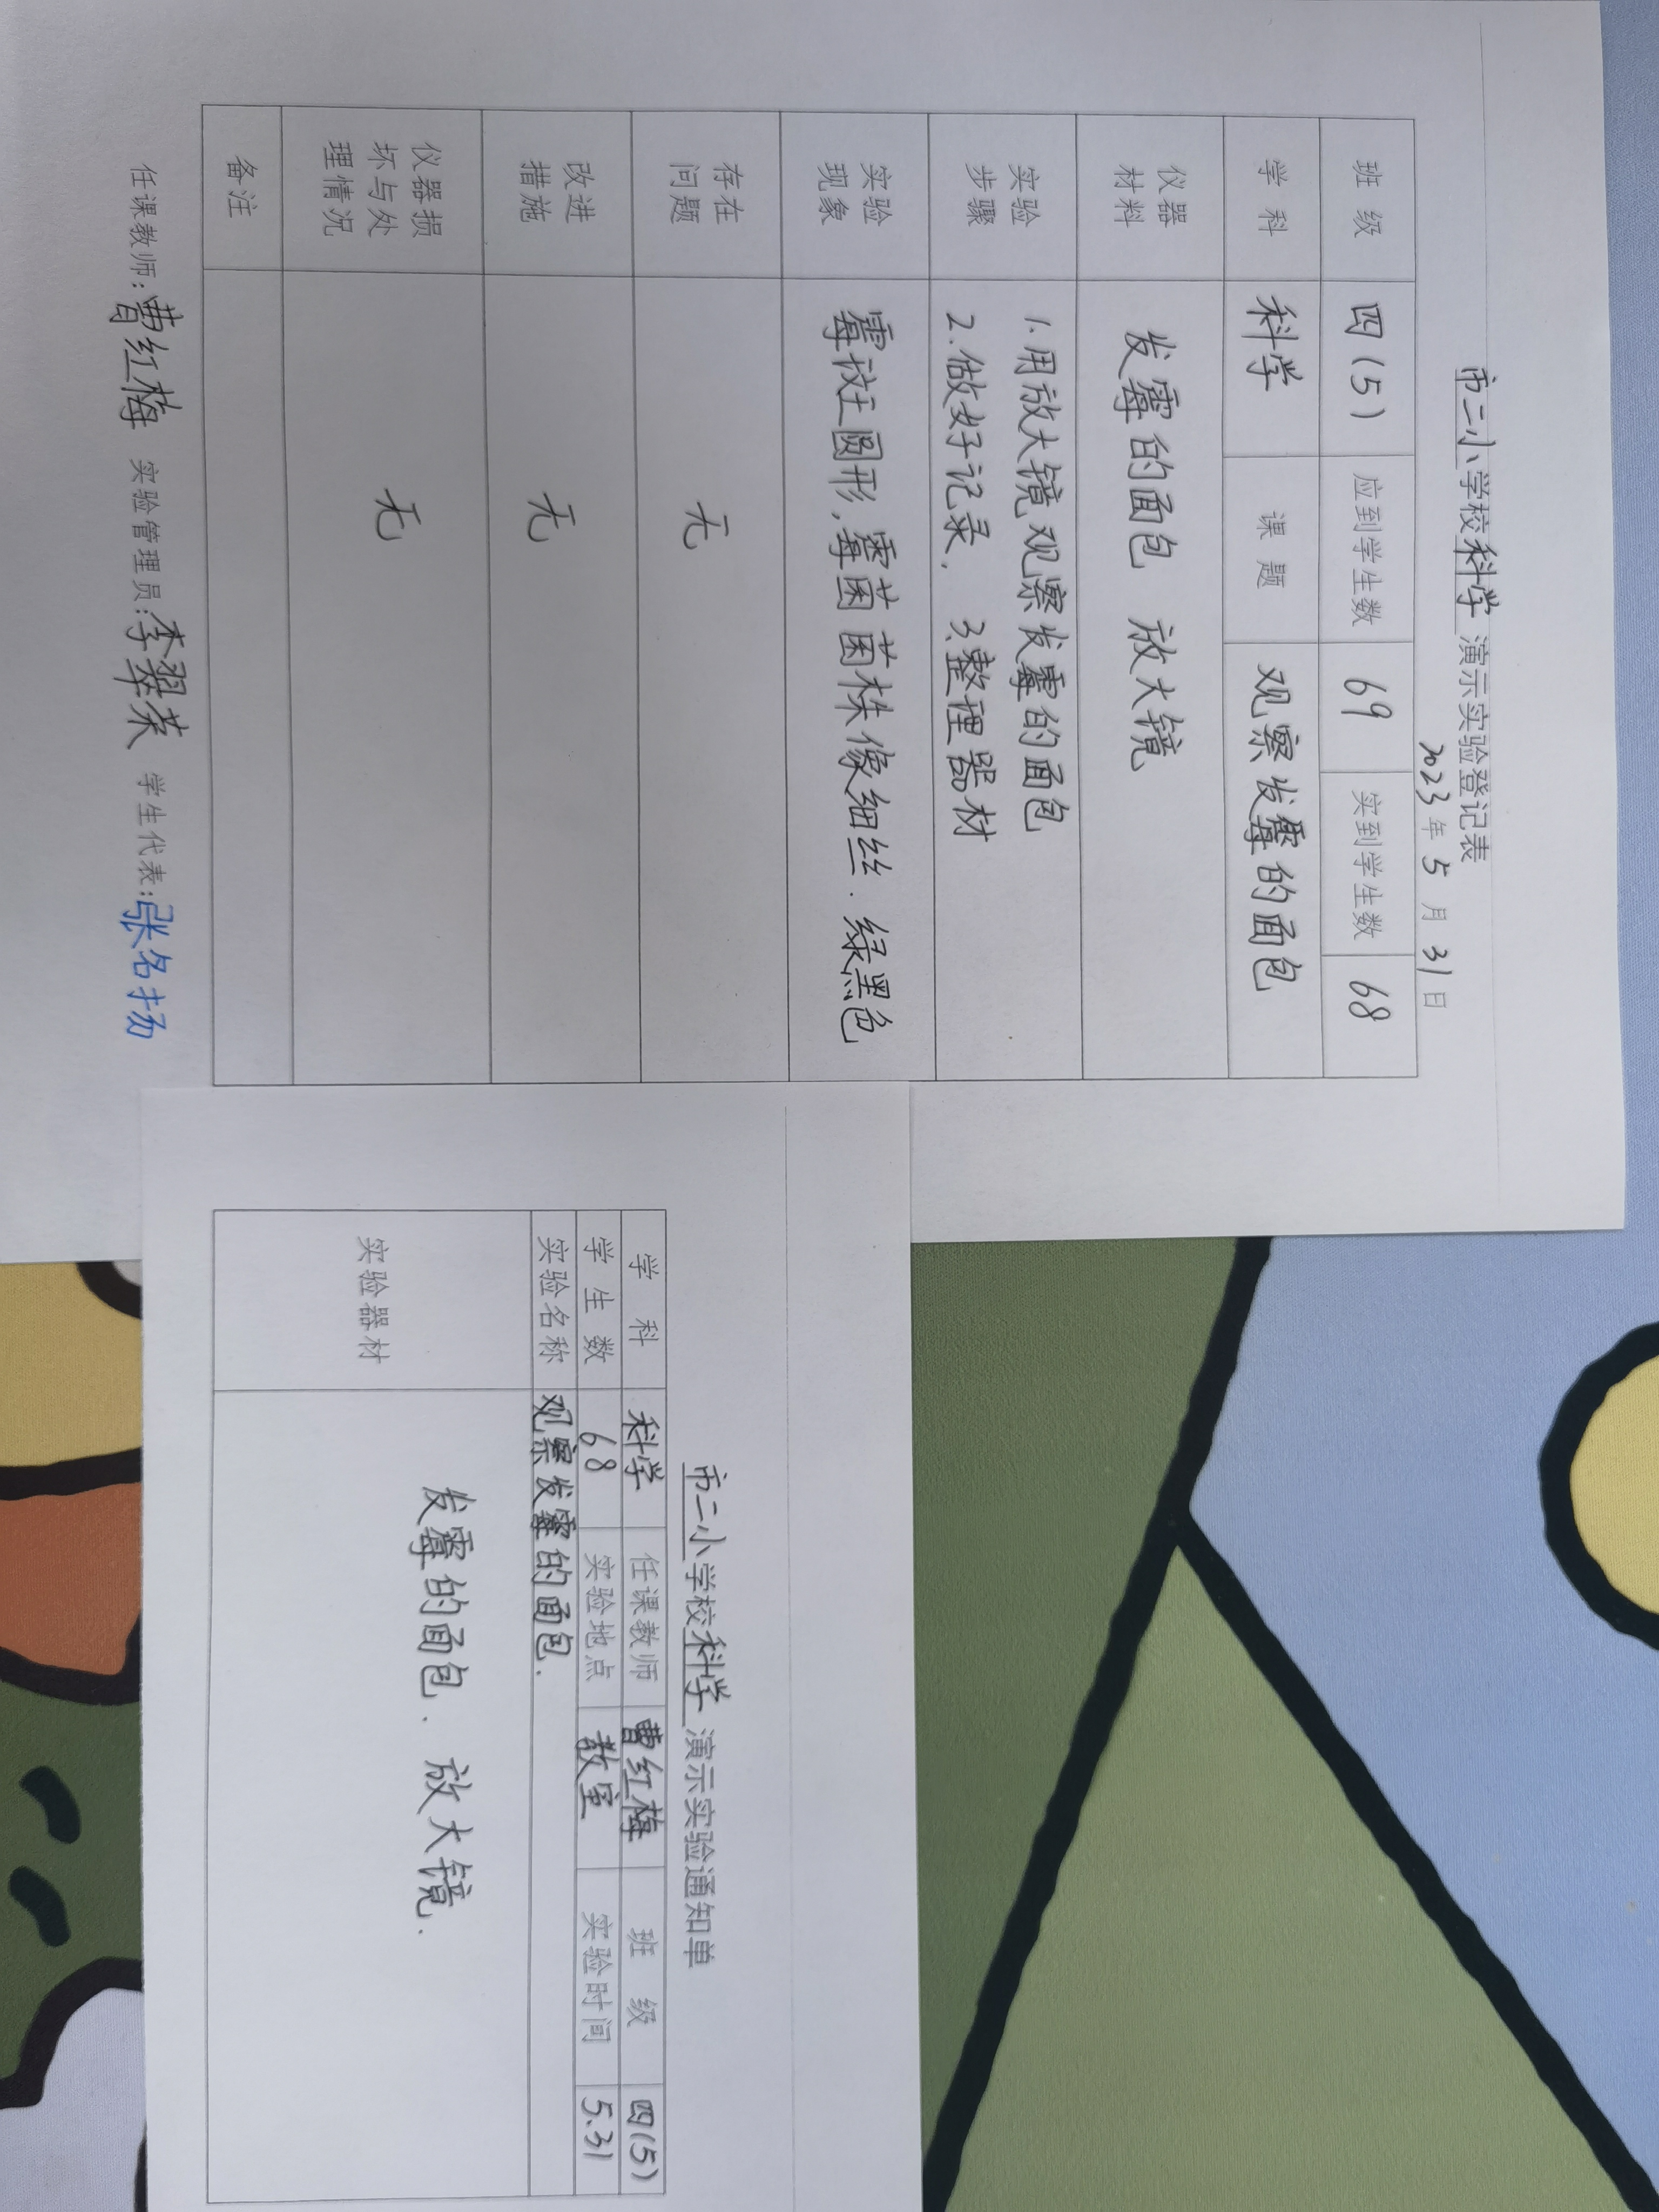 市二小学校科学演示实验登记表
2023年5月31日
班级 四(5) 应到学生数 69 实到学生数 68
学科 科学 课题 观察发霉的面包
仪器材料 发霉的面包 放大镜
实验步骤 1.用放大镜观察发霉的面包
2.做好记录. 3.整理器材
实验现象 霉斑圆形,霉菌菌株像细丝.绿黑色
存在问题 无
改进措施 无
仪器损坏与处理情况 无
备注
任课教师:曹红梅 实验管理员:李翠荣 学生代表:张名扬
市二小学校科学演示实验通知单
学科 科学 任课教师 曹红梅 班级 四(5)
学生数 68 实验地点 教室 实验时间 5.31
实验名称 观察发霉的面包.
实验器材 发霉的面包. 放大镜.